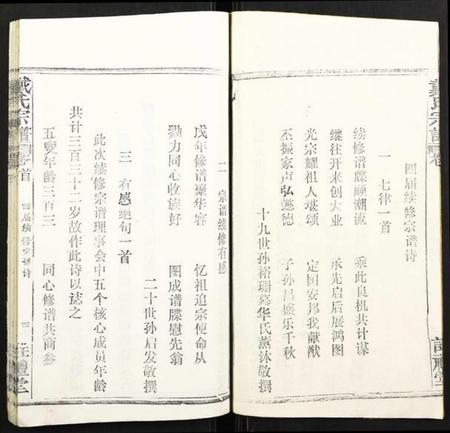 戴氏宗谱 卷
四届续修宗谱诗
一 七律一首
续修谱牒顺潮流 乘此良机共计谋
继往开来创大业 承先启后展鸿图
光宗耀祖人堪颂 定国安邦我献猷
丕振家声弘懿德 子孙昌盛乐千秋
十九世孙裕珊暮华氏薰沐敬撰
二 宗谱续修有感
戊年修谱聚华容 忆祖追宗使命从
勠力同心收族好 图成谱牒慰先翁
二十世孙启发敬撰
三 有感绝句一首
此次续修宗谱理事会中五个核心成员年龄
共计三百三十二岁故作此诗以志之
五叟年龄三百三 同心修谱共商参
戴氏宗谱 卷首
四届续修宗谱诗
四
注礼堂